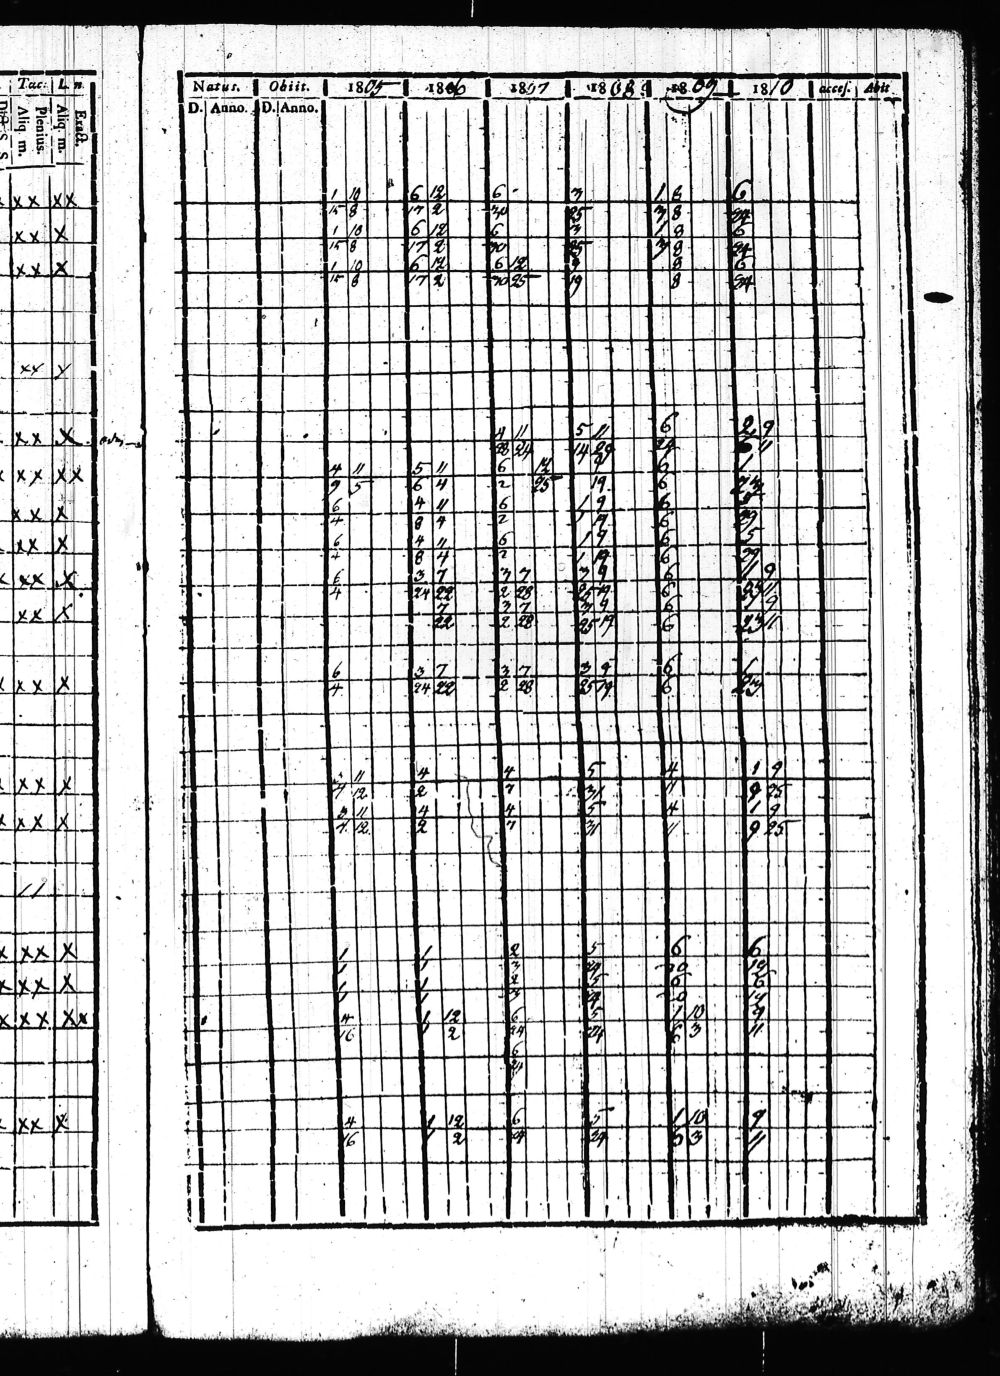 Tac. L. n. Natus. Obiit. 1805 1806 1807 1808 1809 1810 acces. Abit
Plenius. Aliq m. Exact. Aliq m. D. Anno. D. Anno.
xx xx 1 10 6 12 6 3 1 8 6
15 8 17 2 30 25 3 8 24
xx x 1 10 6 12 6 3 1 8 6
15 8 17 2 30 25 3 8 24
xx x 1 10 6 12 6 12 9 8 6
15 8 17 2 30 25 19 8 24
xx x
xx x 4 11 5 11 6 2 9
28 24 14 29 24 6 11
xx xx 4 11 5 11 6 12 9 6 1
9 5 6 4 2 25 19 6 23
xx x 6 4 11 6 1 9 6 5
4 8 4 2 1 19 6 29
xx x 6 4 11 6 1 9 6 5
4 8 4 2 1 19 6 29
xx x 6 3 7 3 7 3 9 6 1 9
4 24 22 2 28 25 19 6 23 11
xx x 7 3 7 3 9 6 1 9
22 2 28 25 19 6 23 11
xx x 6 3 7 3 7 3 9 6 1
4 24 22 2 28 25 19 6 23
xx x 3 11 4 4 5 4 1 9
7 12 2 7 31 11 9 25
xx x 3 11 4 4 5 4 1 9
7 12 2 7 31 11 9 25
11
xx x 1 1 2 5 6 6
1 1 3 24 10 14
xx x 1 1 2 5 6 6
1 1 3 24 10 14
xx xx 4 1 12 6 5 1 10 9
16 1 2 24 24 6 3 11
6
24
xx x 4 1 12 6 5 1 10 9
16 1 2 24 24 6 3 11